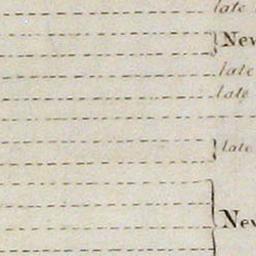 late
New
late
late
late
New